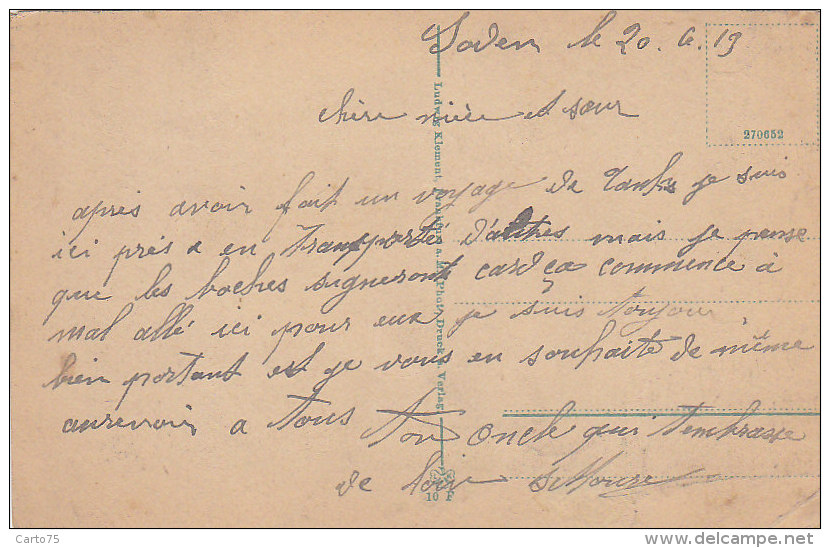 Soden le 20. 6. 19
270652
chère nièce et sœur
après avoir fait un voyage de Tanks je suis
ici près a en transporté d'autres mais je pense
que les boches signeront card ça commence à
mal allé ici pour eux je suis toujour
bien portant et je vous en souhaite de même
aurevoir a tous Ton Oncle qui t'embrasse
de loin
Ludwig Klement, Frankfurt a. M. Photo-Druck u. Verlag
10 F
Carto75
delcampe.net